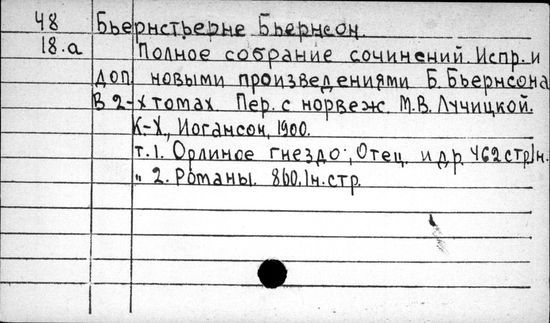 48 Бьернстьерне Бьернсон.
18.а Полное собрание сочинений. Испр. и
доп. новыми произведениями Б. Бьернсона
В 2-х томах. Пер. с норвеж. М.В. Лучицкой.
К-Х., Иогансон, 1900.
т.1. Орлиное гнездо; Отец. и др. 462 стр. 1н.
" 2. Романы. 860.1н. стр.